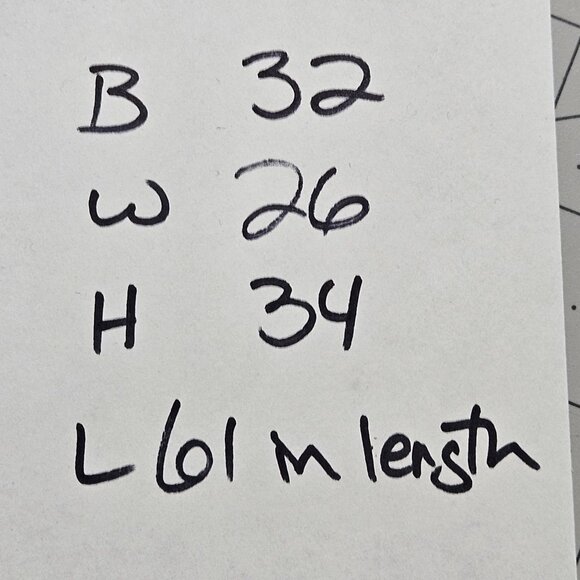 B 32
W 26
H 34
L 61 in length